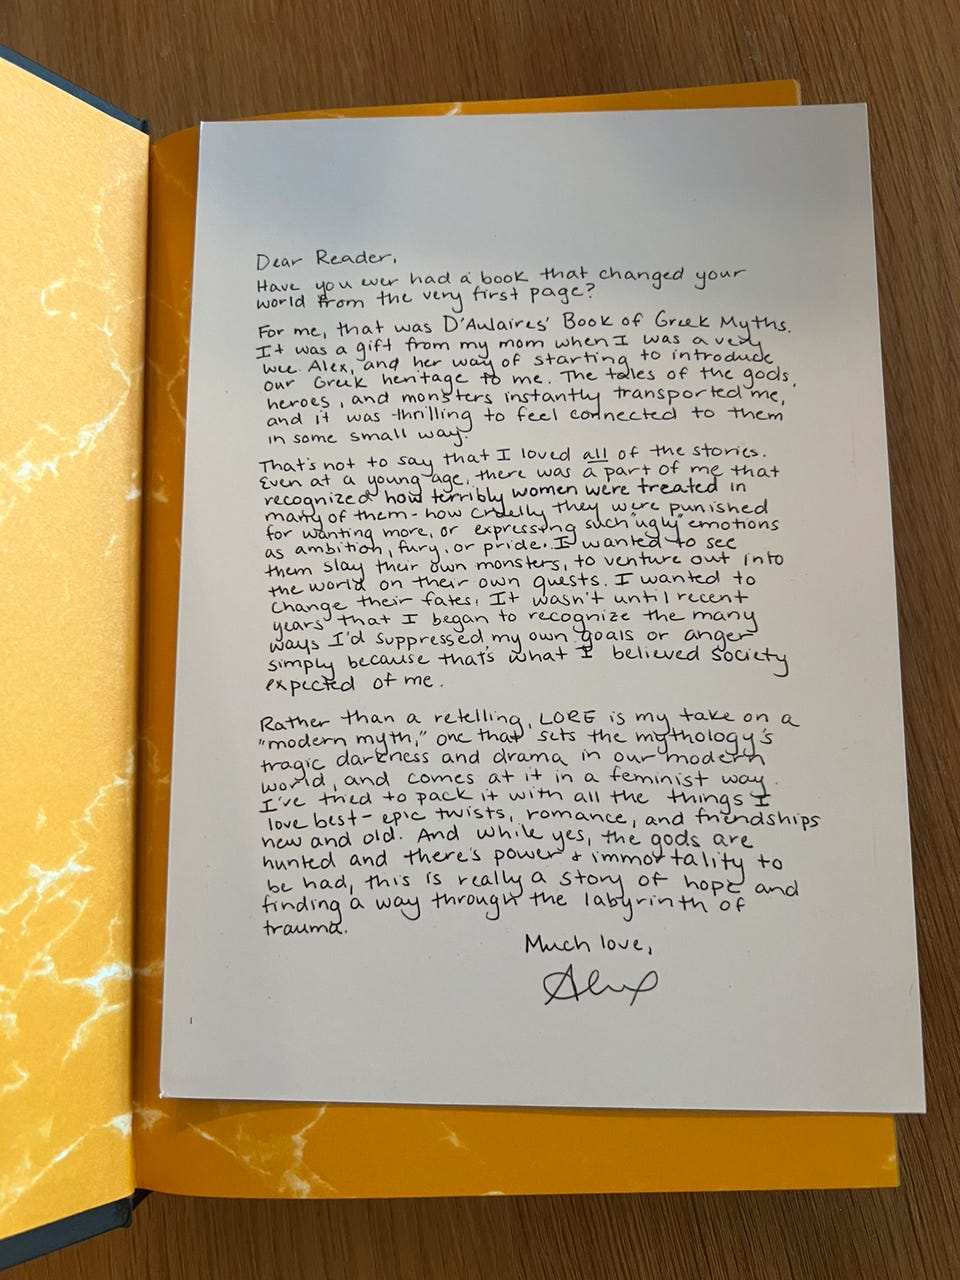 Dear Reader,
Have you ever had a book that changed your
world from the very first page?
For me, that was D'Aulaires' Book of Greek Myths.
It was a gift from my mom when I was a very
wee Alex, and her way of starting to introduce
our Greek heritage to me. The tales of the gods,
heroes, and monsters instantly transported me,
and it was thrilling to feel connected to them
in some small way.
That's not to say that I loved all of the stories.
Even at a young age, there was a part of me that
recognized how terribly women were treated in
many of them - how cruelly they were punished
for wanting more, or expressing such "ugly" emotions
as ambition, fury, or pride. I wanted to see
them slay their own monsters, to venture out into
the world on their own quests. I wanted to
change their fates. It wasn't until recent
years that I began to recognize the many
ways I'd suppressed my own goals or anger
simply because that's what I believed society
expected of me.
Rather than a retelling, LORE is my take on a
"modern myth," one that sets the mythology's
tragic darkness and drama in our modern
world, and comes at it in a feminist way.
I've tried to pack it with all the things I
love best - epic twists, romance, and friendships
new and old. And while yes, the gods are
hunted and there's power & immortality to
be had, this is really a story of hope and
finding a way through the labyrinth of
trauma.
Much love,
Alex